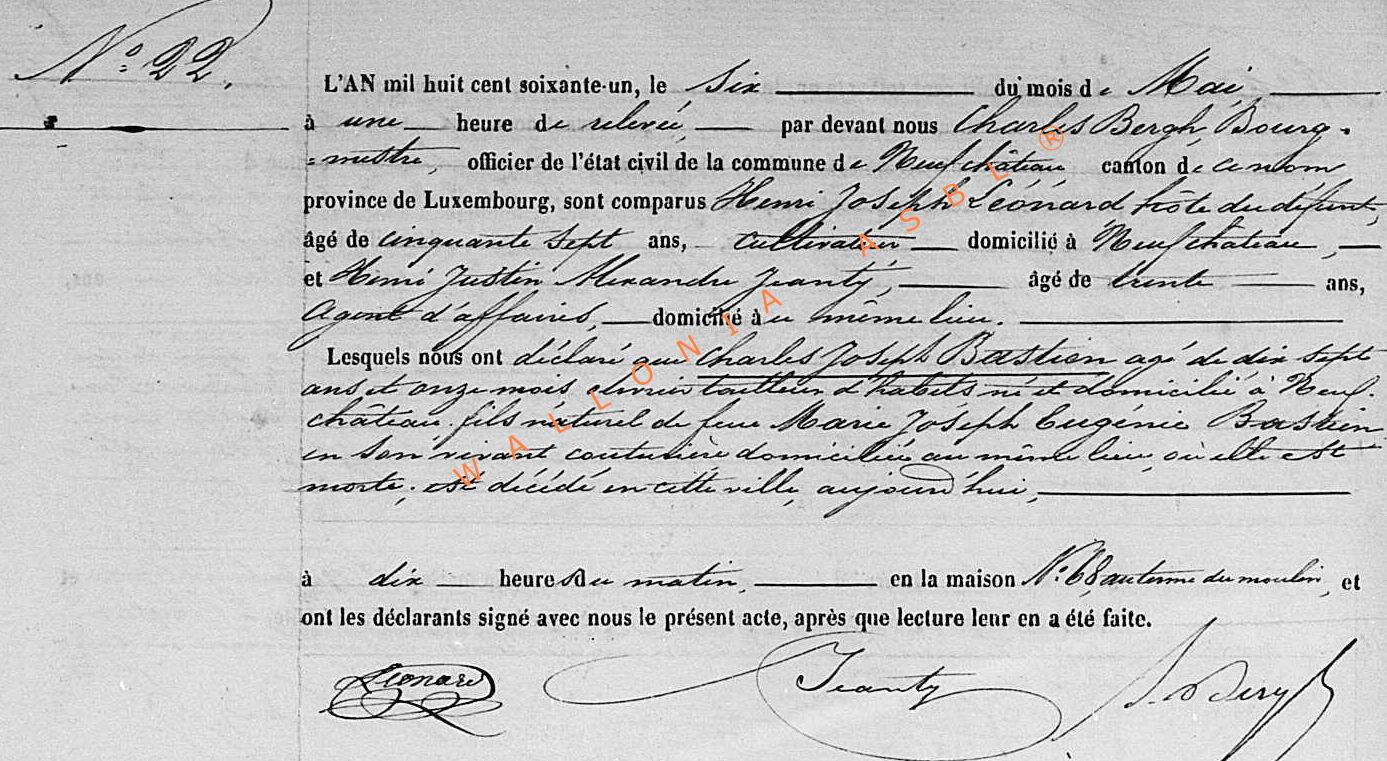 N° 22.
L'AN mil huit cent soixante-un, le six du mois de Mai,
à une heure de relevée, par devant nous Charles Bergh, Bourg-
=mestre, officier de l'état civil de la commune de Neufchâteau canton de ce nom
province de Luxembourg, sont comparus Henri Joseph Léonard hôte du défunt,
âgé de cinquante sept ans, cultivateur domicilié à Neufchâteau,
et Henri Justin Alexandre Jeanty, âgé de trente ans,
Agent d'affaires, domicilié au même lieu.
Lesquels nous ont déclaré que Charles Joseph Bastien agé de dix sept
ans et onze mois, ouvrier tailleur d'habits né et domicilié à Neuf-
château, fils naturel de feue Marie Joséph Eugénie Bastien
en son vivant couturière domiciliée au même lieu, où elle est
morte; est décédé en cette ville, aujourd'hui,
à dix heures du matin, en la maison N° 68, au terme du moulin, et
ont les déclarants signé avec nous le présent acte, après que lecture leur en a été faite.
Léonard Jeanty Bergh
WALLONIA ASBL ®